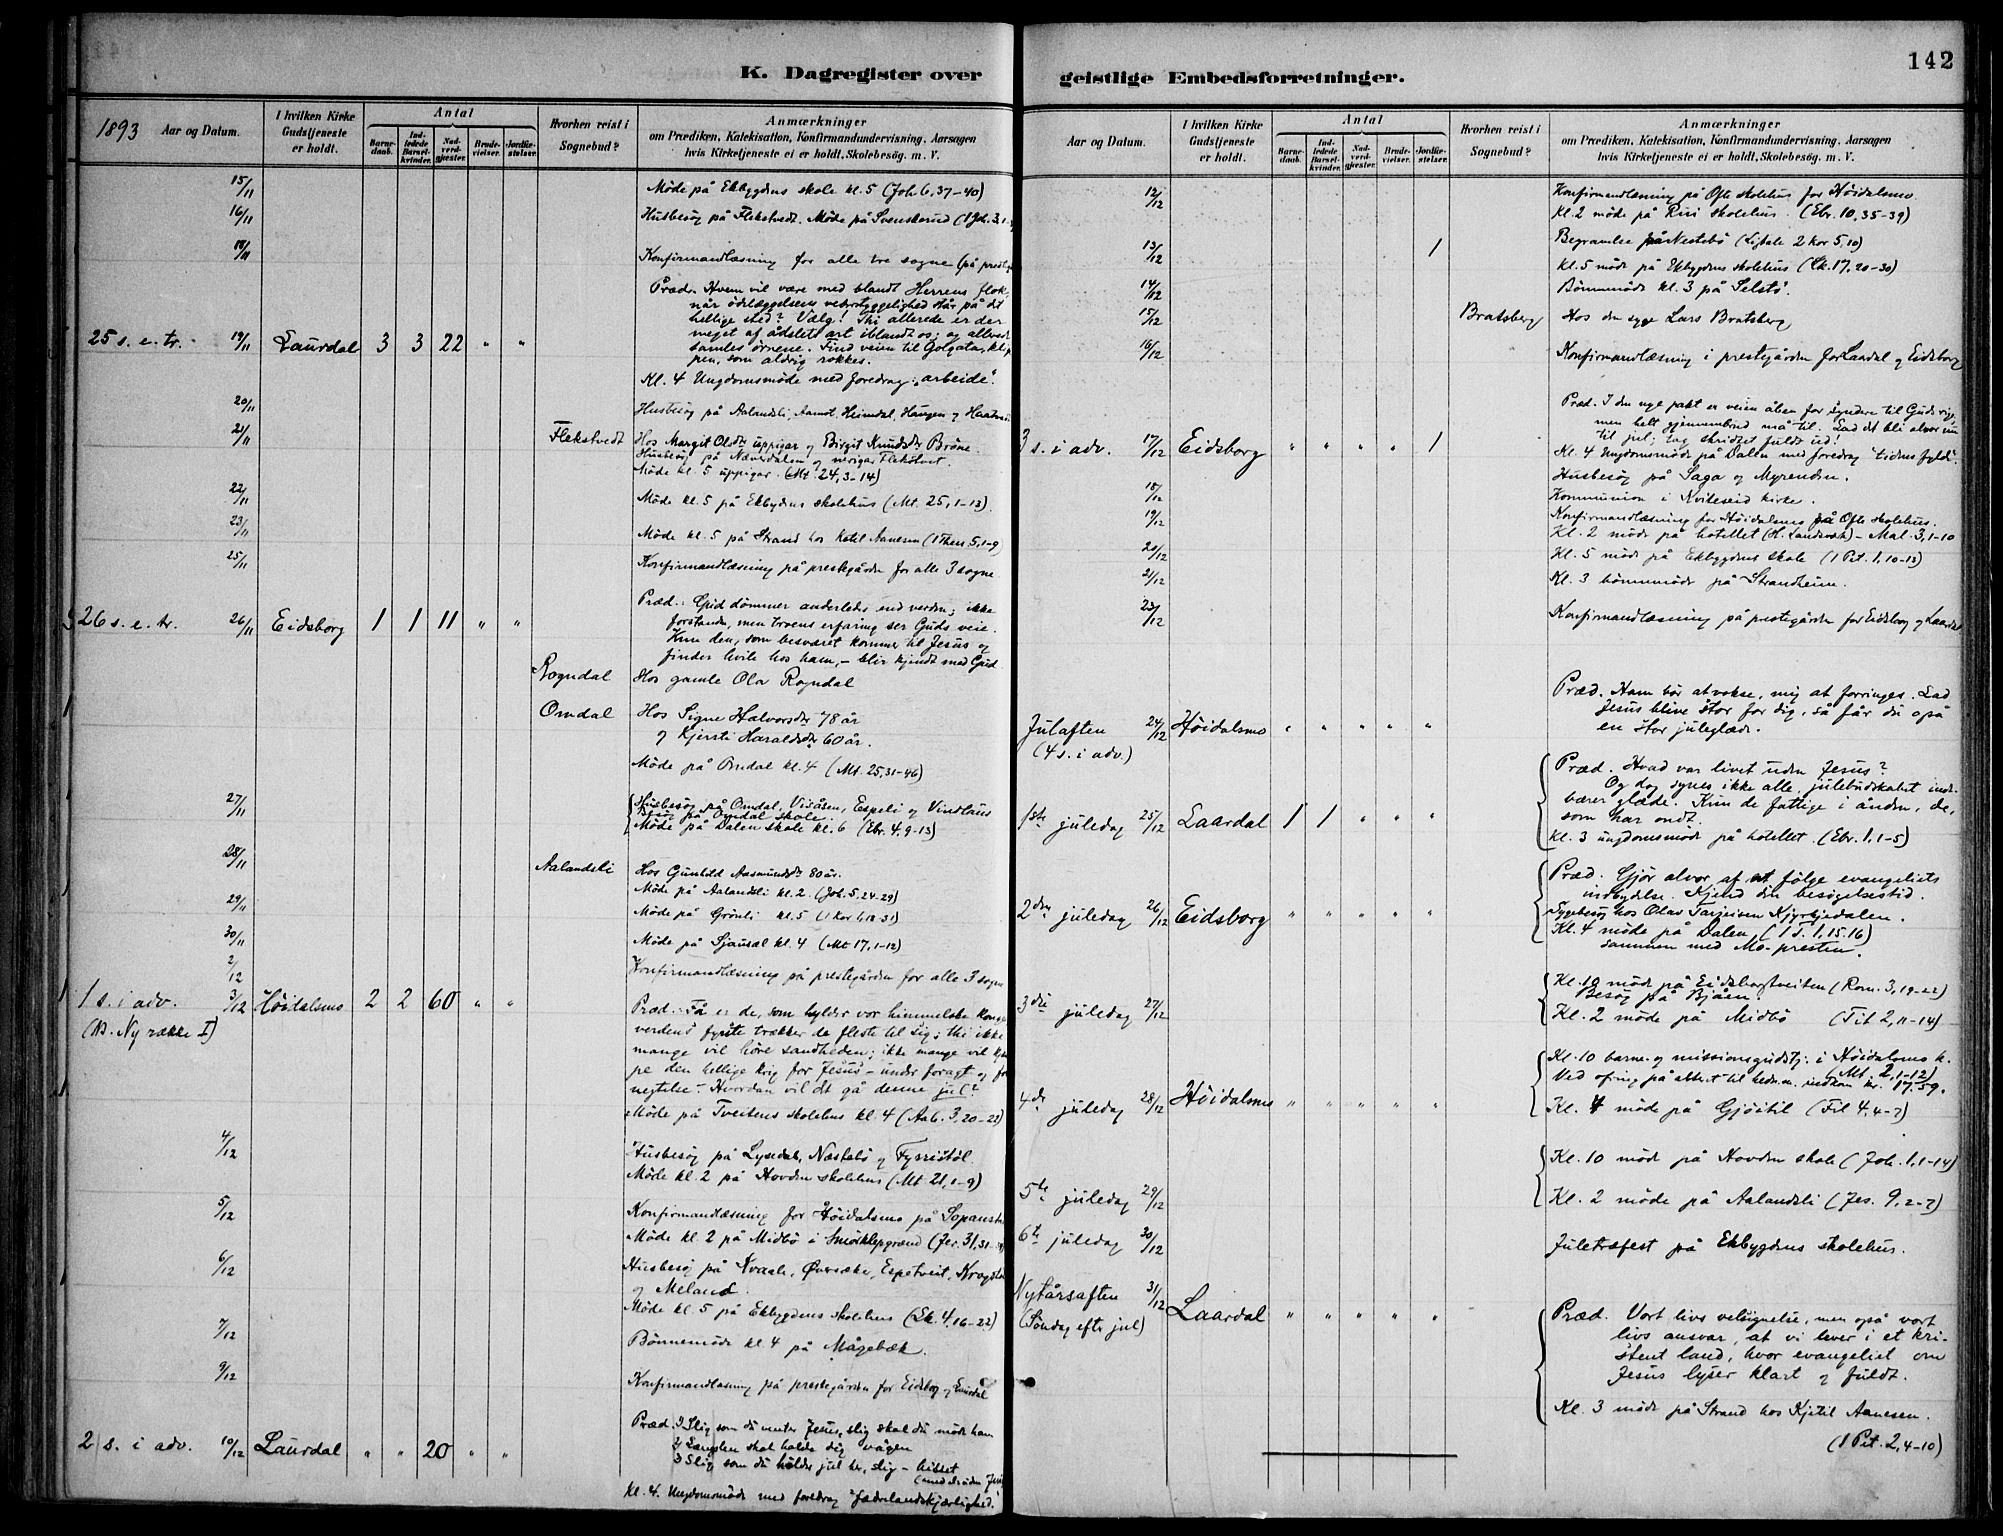 K. Dagregister over
geistlige Embedsforretninger.
142
1893 Aar og Datum.
I hvilken Kirke Gudstjeneste er holdt.
Antal
Barnedaab.
Indledede Barselkvinder.
Nadverdgjester.
Brudevielser.
Jordfæstelser.
Hvorhen reist i Sognebud?
Anmærkninger
om Prædiken, Katekisation, Konfirmandundervisning, Aarsagen
hvis Kirketjeneste ei er holdt, Skolebesøg. m. V.
15/11 Møde på Ekbygdens skole kl. 5 (Joh. 6, 37-40)
16/11 Husbesøg på Flekstvedt. Møde på
18/11 Konfirmandlæsning for alle tre sogne
Præd. Hvem vil være med blandt Herrens
når ødelæggelsens vederstyggelighed står på det
hellige sted? Vælg! Thi allerede er der
meget af ådslets art iblandt os; og
25 s. e. tr. 19/11 Laurdal 3 3 22 " " samles ørnene. Find veien til Golgata,
pen, som aldrig rokkes.
Kl. 4 Ungdomsmøde med foredrag: "arbeide".
20/11 Husbesøg på Aalandsli, Aamot, Heimdal, Haugen og
21/11 Flekstvedt Hos Margit Olsdtr uppigar og Birgit Knudsdtr
Husbesøg på
Møde kl. 5 uppigar. (Mt. 24, 3-14)
22/11 Møde kl. 5 på Ekbydens skolehus (Mt. 25, 1-13).
23/11 Møde kl. 5 på Strand hos Ketil Aanesen (1 Thess. 5, 1-9)
25/11 Konfirmandlæsning på prestegården for alle 3 sogne
Præd.: Gud dømmer anderledes end verden; ikke
forstanden, men troens erfaring ser Guds veie.
26 s. e. tr. 26/11 Eidsborg 1 1 11 " "
Kun den, som besværet kommer til Jesus og
finder hvile hos ham, - blir kjendt med Gud
Rogndal Hos gamle Ola Rogndal
Omdal Hos Signe Halvorsdtr 78 år
og Kjersti Haraldsdtr 60 år.
Møde på Omdal kl. 4 (Mt. 25, 31-46)
27/11 Husbesøg på Omdal, Espeli og Vindlaus
Besøg på Omdal skole.
Møde på Dalen skole kl. 6 (Ebr. 4, 9-13)
28/11 Aalandsli Hos Gunhild Aasmundsdtr 80 år.
Møde på Aalandsli kl. 2 (Joh. 5, 24-29)
29/11 Møde på Grønli kl. 5
30/11 Møde på kl. 4 (Mt 17, 1-12)
2/12 Konfirmandlæsning på prestegården for alle 3 sogne
1 s. i adv. 3/12 Høidalsmo 2 2 60 " " Præd.: Få er de, som hylder vor himmelske
(NB. Ny række I) verdens fyrste trækker de fleste til sig; thi ikke
mange vil høre sandheden; ikke mange vil
pe den hellige krig for Jesus - under foragt og
negtelse. Hvordan vil det gå denne jul?
Møde på Tveitens skolehus kl. 4
4/12 Husbesøg på Næstebø og
Møde kl. 2 på Hovden skolehus (Mt. 21, 1-9)
5/12 Konfirmandlæsning for Høidalsmo på
Møde kl. 2 på Midbø i
6/12 Husbesøg på Kvaale, Espetveit,
og Meland.
Møde kl. 5 på Ekbygdens skolehus (Lk. 4, 16-22)
7/12 Bønnemøde kl. 4 på Mågebæk.
9/12 Konfirmandlæsning på prestegården for Eidsborg og Laurdal
Præd. 1 Slig som du venter Jesus, slig skal du møde ham
2 s. i adv. 10/12 Laurdal " " 20 " " 2) Længslen skal holde dig vågen
3 Slig som du holder jul her, slig - hisset
Kl. 4. Ungdomsmøde med foredrag "fædrelandskjærlighed."
Aar og Datum.
I hvilken Kirke Gudstjeneste er holdt.
Antal
Barnedaab.
Indledede Barselkvinder.
Nadverdgjester.
Brudevielser.
Jordfæstelser.
Hvorhen reist i Sognebud?
Anmærkninger
om Prædiken, Katekisation, Konfirmandundervisning, Aarsagen
hvis Kirketjeneste ei er holdt, Skolebesøg. m. V.
12/12 Konfirmandlæsning på Ofte skolehus for Høidalsmo
Kl. 2 møde på skolehus. (Ebr. 10, 35-39)
13/12 1 Begravelse på Nestebø (Ligtale 2 Kor 5, 10)
Kl. 5 møde på Ekbygdens skolehus (Lk. 17, 20-30)
14/12 Bønnemøde kl. 3 på Selstø.
15/12 Bratsberg Hos den syge Lars Bratsberg
16/12 Konfirmandlæsning i prestegården for Laardal og Eidsborg
Præd. I den nye pakt er veien åben for syndere til Guds
men helt gjennembrud må til. Lad det bli alvor
3 s. i adv. 17/12 Eidsborg " " " " 1 til jul; tag skridtet fuldt ud!
Kl. 4 Ungdomsmøde på Dalen med foredrag "tidens fylde".
18/12 Husbesøg på Saga og Myrenden.
Kommunion i Kviteseid kirke.
19/12 Konfirmandlæsning for Høidalsmo på Ofte skolehus.
Kl. 2 møde på hotellet - Mal. 3, 1-10
Kl. 5 møde på Ekbygdens skole (1 Pet. 1, 10-13)
21/12 Kl. 3 bønnemøde på Strandheim.
23/12 Konfirmandlæsning på prestegården for Eidsborg og Laardal
Præd. Ham bør at vokse, mig at forringes. Lad
Juleaften 24/12 Høidalsmo " " " " " Jesus blive stor for dig, så får du også
(4 s. i adv.) en stor juleglæde.
Præd. Hvad var livet uden Jesus?
Og dog synes ikke alle, julebudskabet inde-
bærer glæde. Kun de fattige i ånden, de,
1ste juledag 25/12 Laardal 1 1 " " " som har ondt.
Kl. 3 ungdomsmøde på hotellet. (Ebr. 1, 1-5)
Præd. Gjør alvor af at følge evangeliets
indbydelse. Kjend din besøgelsestid.
2den juledag 26/12 Eidsborg " " " " " Sygebesøg hos Olav Tarjeisen Kyrkjedalen.
Kl. 4 møde på Dalen,
sammen med Mo-presten.
3die juledag 27/12 Kl. 10 møde på Eidsborgtveiten (Rom. 3, 19-22)
Besøg på Bjåen.
Kl. 2 møde på Midbø (Tit 2, 11-14)
Kl. 10 barne- og missionsgudstj. i Høidalsmo k.
(Mt. 2, 1-12)
4de juledag 28/12 Høidalsmo " " " " " Ved ofring på alteret til hedn.m. indkom kr. 17.59.
Kl. 4 møde på Gjøitil (Fil 4, 4-7)
Kl. 10 møde på Hovden skole (Joh. 1, 1-14)
5te juledag 29/12 Kl. 2 møde på Aalandsli (Jes. 9, 2-7)
6te juledag 30/12 Juletræfest på Ekbygdens skolehus.
Nytårsaften 31/12 Laardal " " " " " Præd. Vort livs velsignelse, men også vort
(Søndag efter jul) livs ansvar, at vi lever i et kri-
stent land, hvor evangeliet om
Jesus lyser klart og fuldt.
Kl. 3 møde på Strand hos Kjetil Aanesen.
(1 Pet. 2, 4-10)